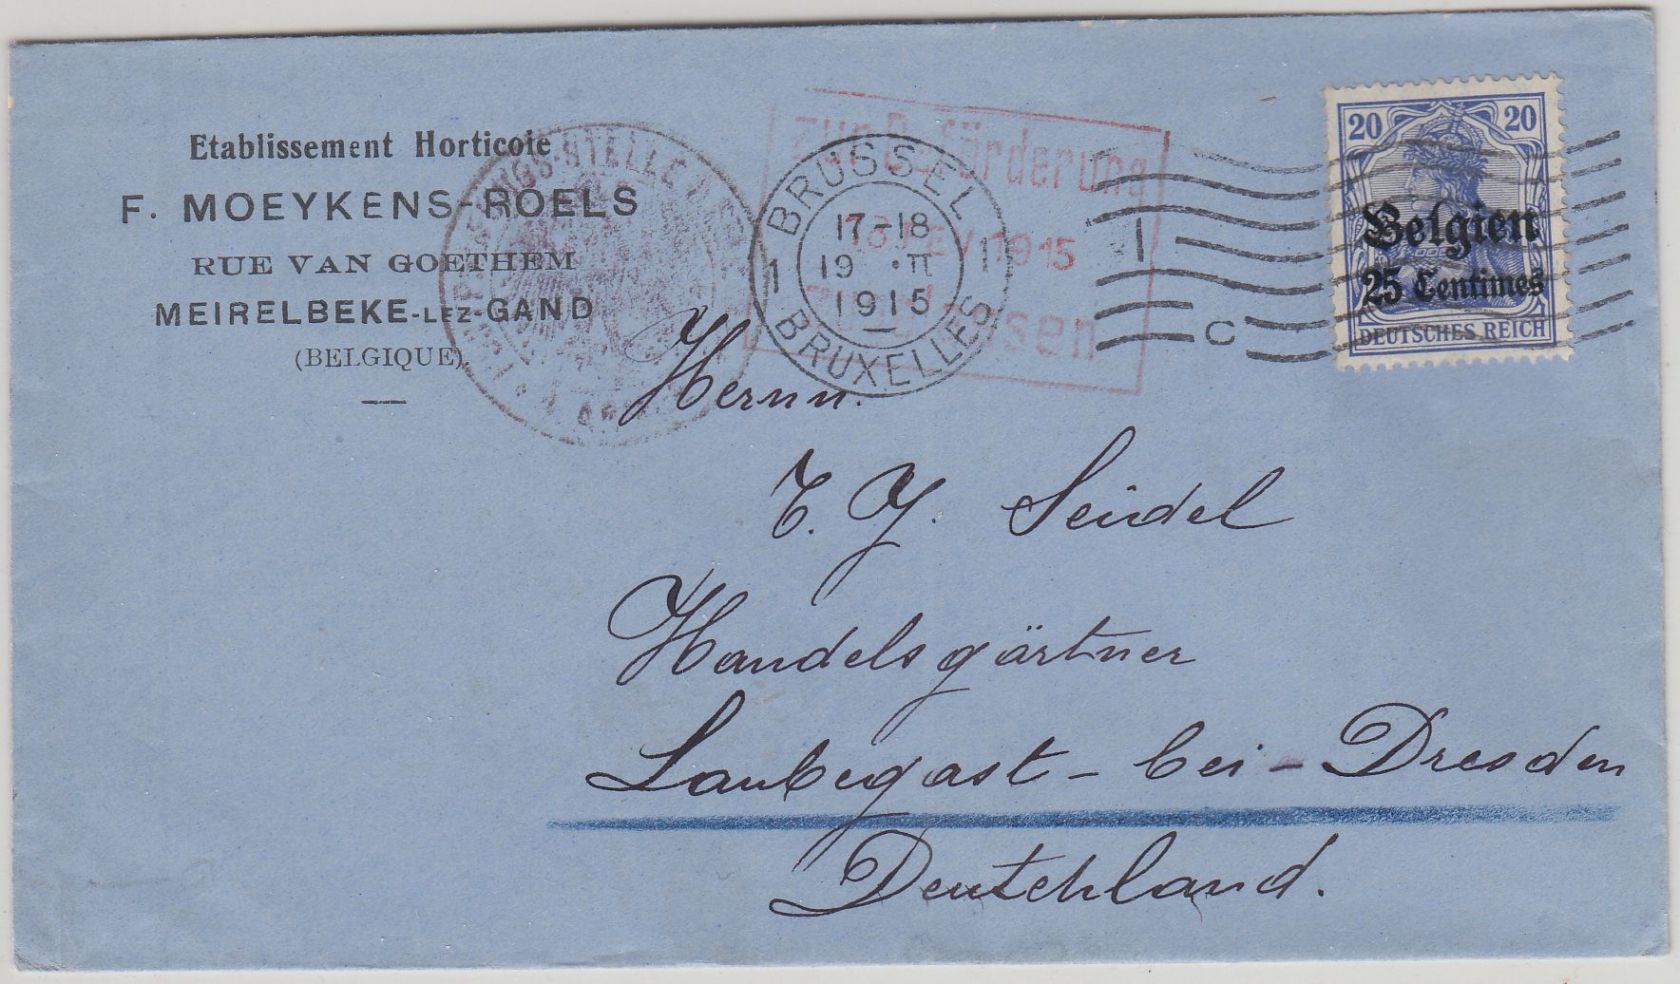 Etablissement Horticole
F. MOEYKENS-ROELS
RUE VAN GOETHEM
MEIRELBEKE-LEZ-GAND
(BELGIQUE)
zur Beförderung
1915
BRUSSEL
17-18
1 19 . II 1
1915
BRUXELLES
1
C
20 20
Belgien
25 Centimes
DEUTSCHES REICH
Herrn.
T. J. Seidel
Handelsgärtner
Laubegast - bei - Dresden
Deutchland.